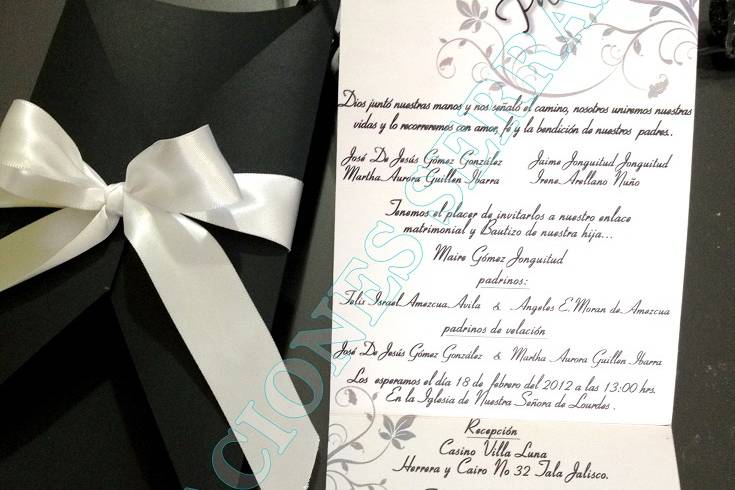 Dios juntó nuestras manos y nos señaló el camino, nosotros uniremos nuestras
vidas y lo recorreremos con amor, fé y la bendición de nuestros padres..
José De Jesús Gómez González Jaime Jonguitud Jonguitud
Martha Aurora Guillen Ibarra Irene Arellano Nuño
Tenemos el placer de invitarlos a nuestro enlace
matrimonial y Bautizo de nuestra hija...
Maire Gómez Jonguitud
padrinos:
Felis Israel Amezcua Avila & Angeles E.Moran de Amezcua
padrinos de velación
José De Jesús Gómez González & Martha Aurora Guillen Ibarra
Los esperamos el día 18 de febrero del 2012 a las 13:00 hrs.
En la Iglesia de Nuestra Señora de Lourdes .
Recepción
Casino Villa Luna
Herrera y Cairo No 32 Tala Jalisco.